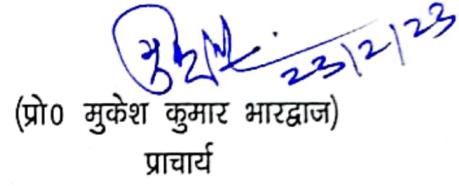 23/2/23
(प्रो0 मुकेश कुमार भारद्वाज)
प्राचार्य